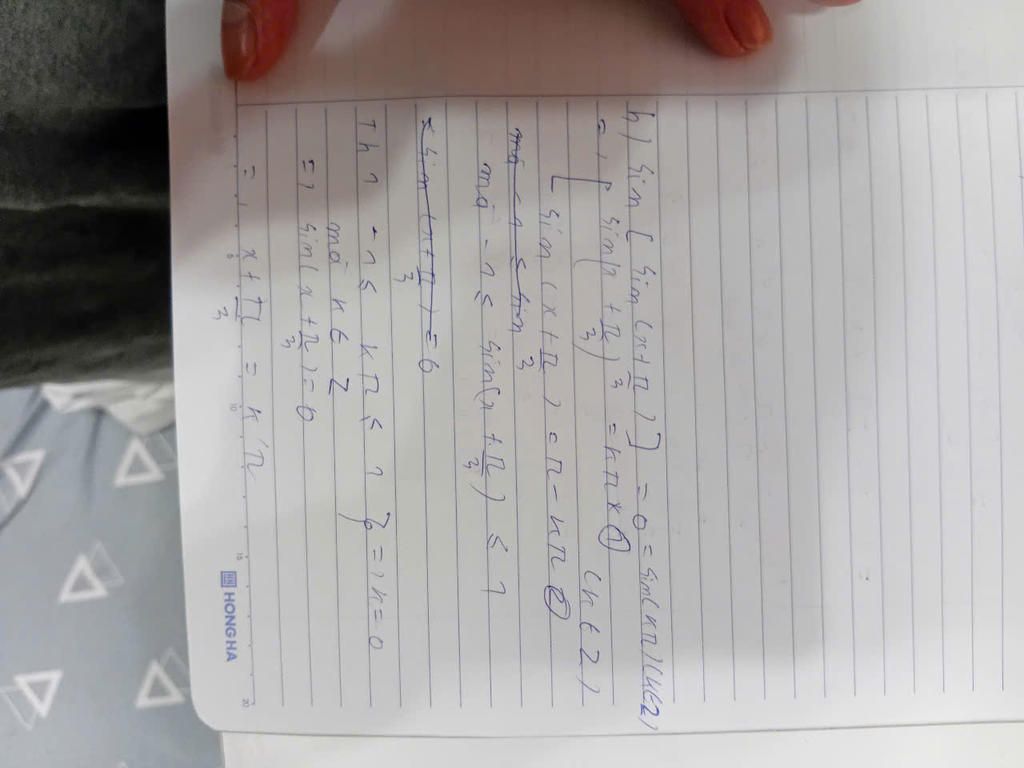 h) sin [ sin (x + π/3) ] = 0 = sin(kπ) (k∈Z)
=> [ sin(x + π/3) = kπ × ① (k∈Z)
[ sin (x + π/3) = π - kπ ②
mà -1 ≤ sin
mà -1 ≤ sin(x + π/3) ≤ 1
sin (x + π/3) = 6
Th1 -1 ≤ kπ ≤ 1 } => k = 0
mà k∈Z
=> sin(x + π/3) = 0
= x + π/3 = k'π
HONG HA
5 10 15 20